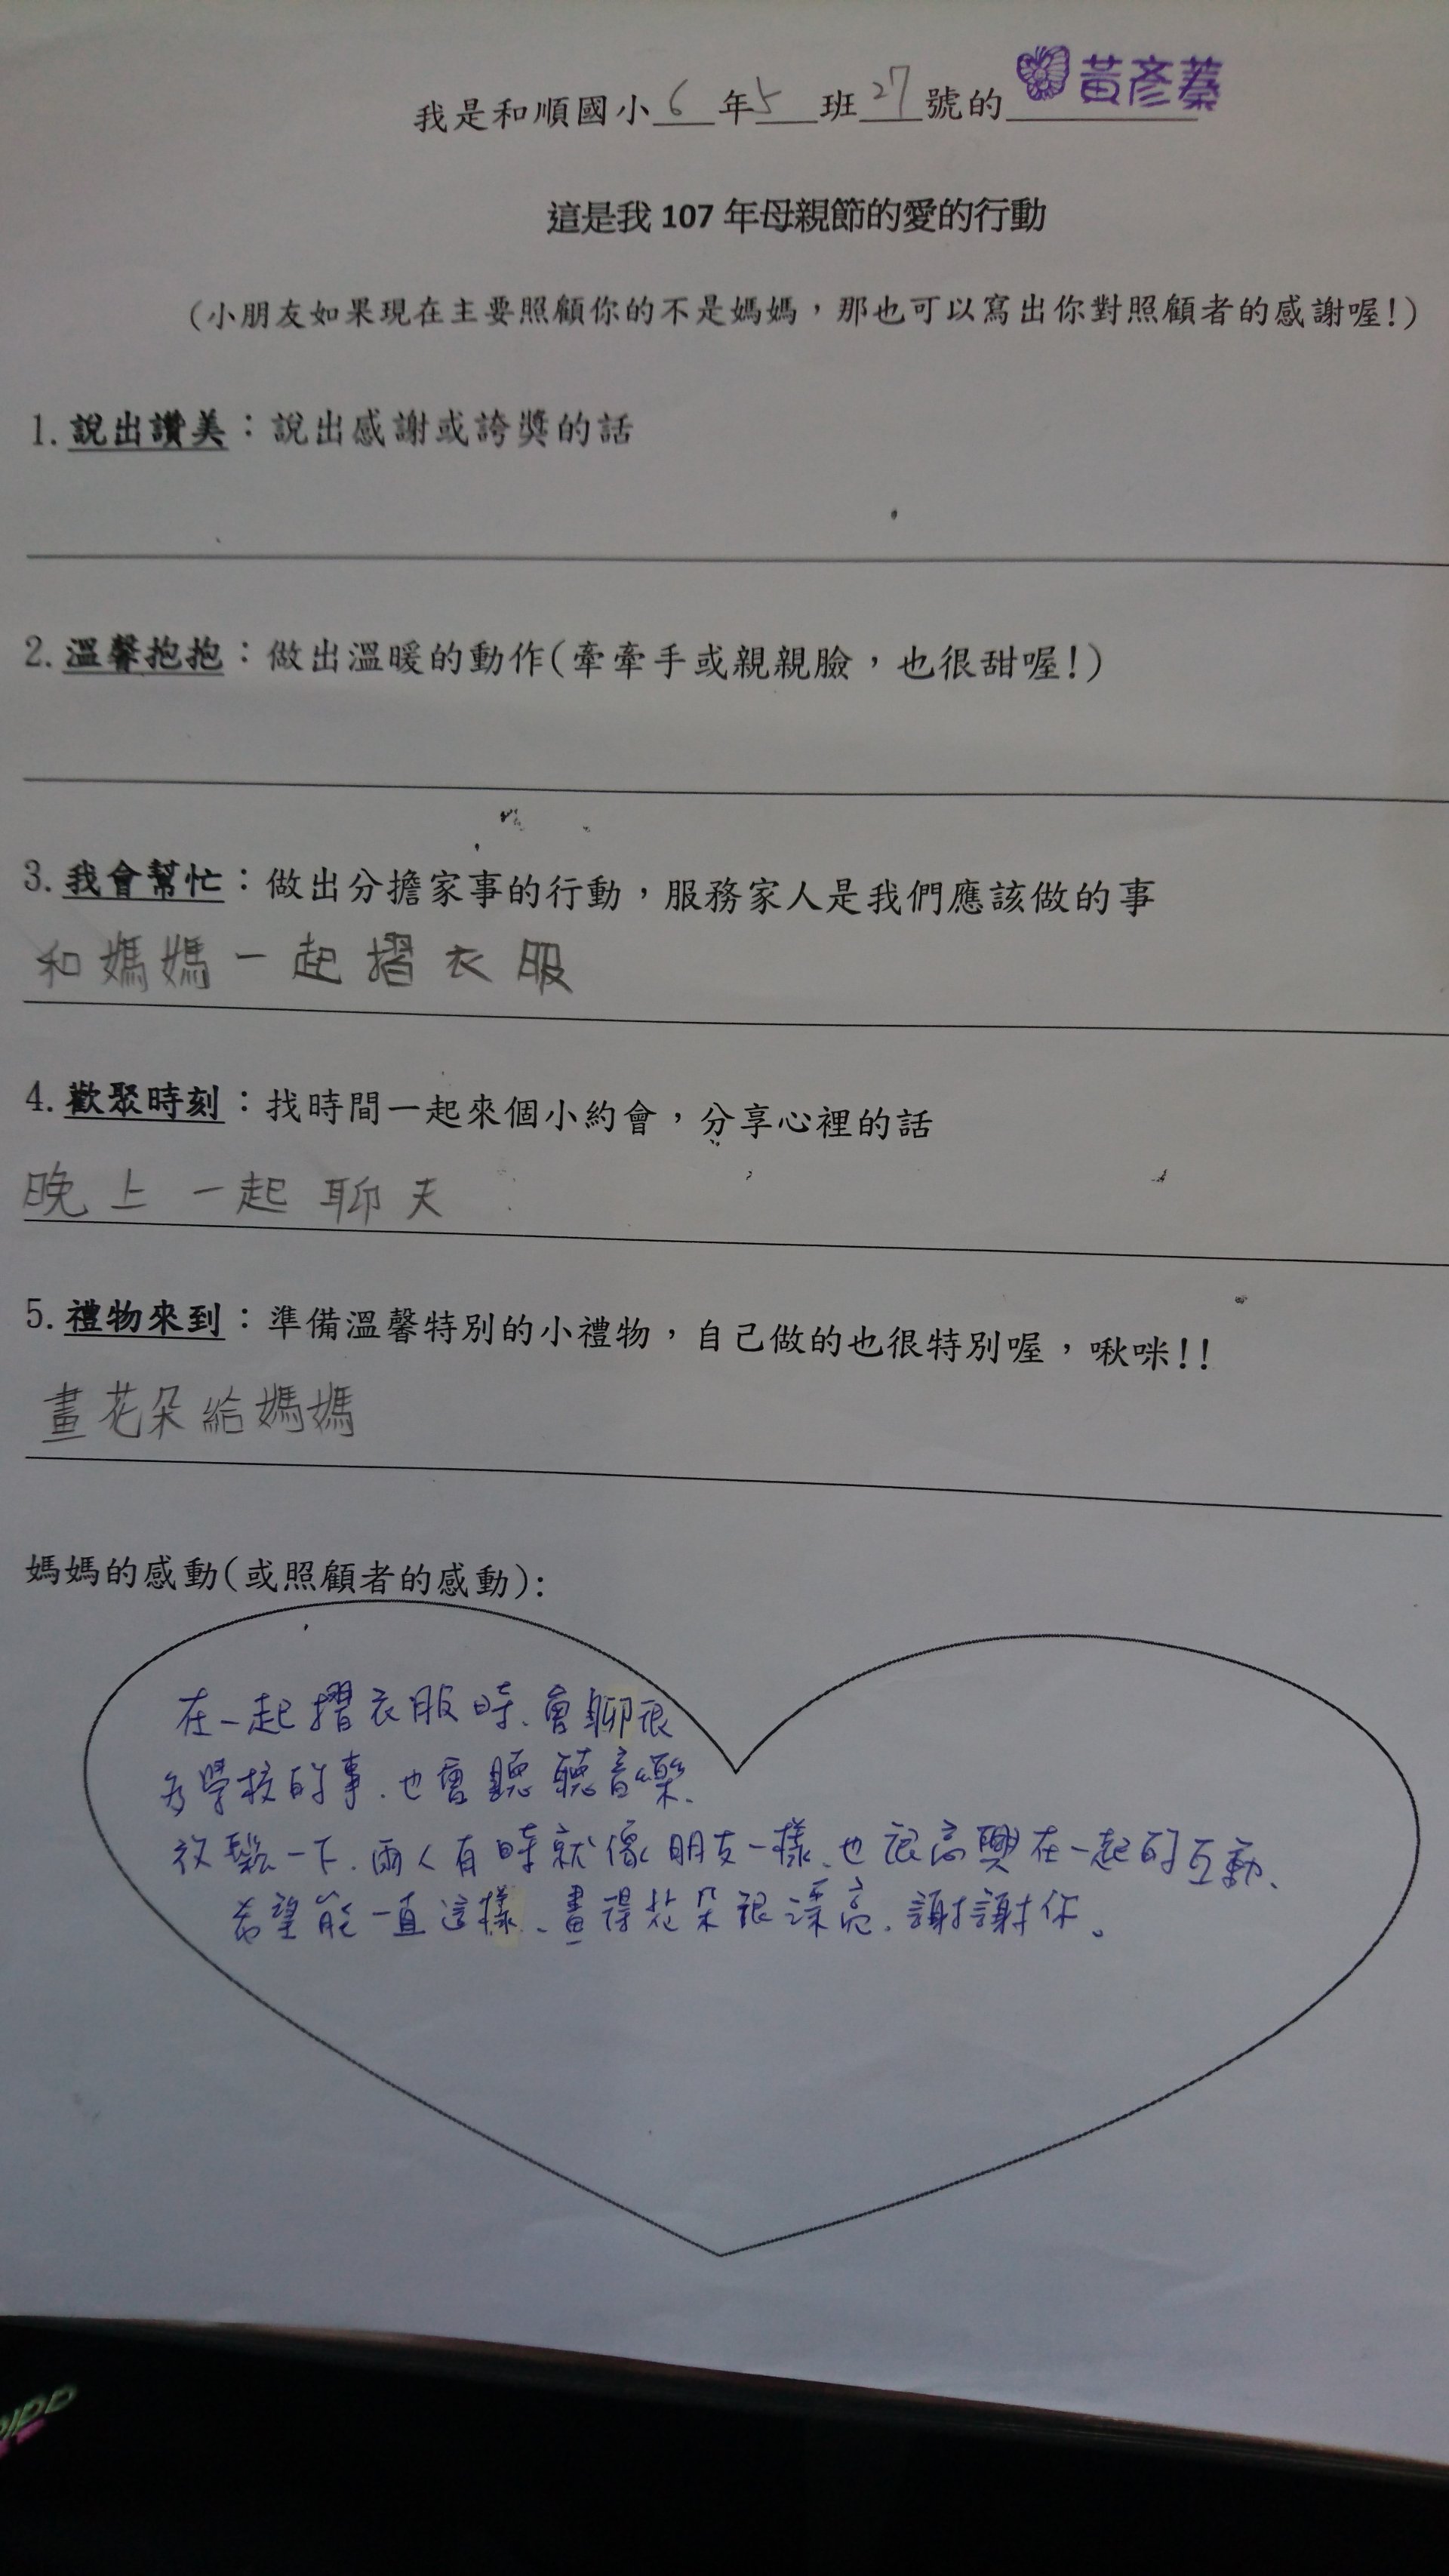 我是和順國小 6 年 5 班 27 號的 黃彥蓁
這是我 107 年母親節的愛的行動
(小朋友如果現在主要照顧你的不是媽媽，那也可以寫出你對照顧者的感謝喔!)
1.說出讚美：說出感謝或誇獎的話
2.溫馨抱抱：做出溫暖的動作(牽牽手或親親臉，也很甜喔!)
3.我會幫忙：做出分擔家事的行動，服務家人是我們應該做的事
和媽媽一起摺衣服
4.歡聚時刻：找時間一起來個小約會，分享心裡的話
晚上一起聊天
5.禮物來到：準備溫馨特別的小禮物，自己做的也很特別喔，啾咪!!
畫花朵給媽媽
媽媽的感動(或照顧者的感動):
在一起摺衣服時、會聊很
多學校的事、也會聽聽音樂、
放鬆一下、兩人有時就像朋友一樣、也很高興在一起的互動、
希望能一直這樣、畫得花朵很漂亮、謝謝你。